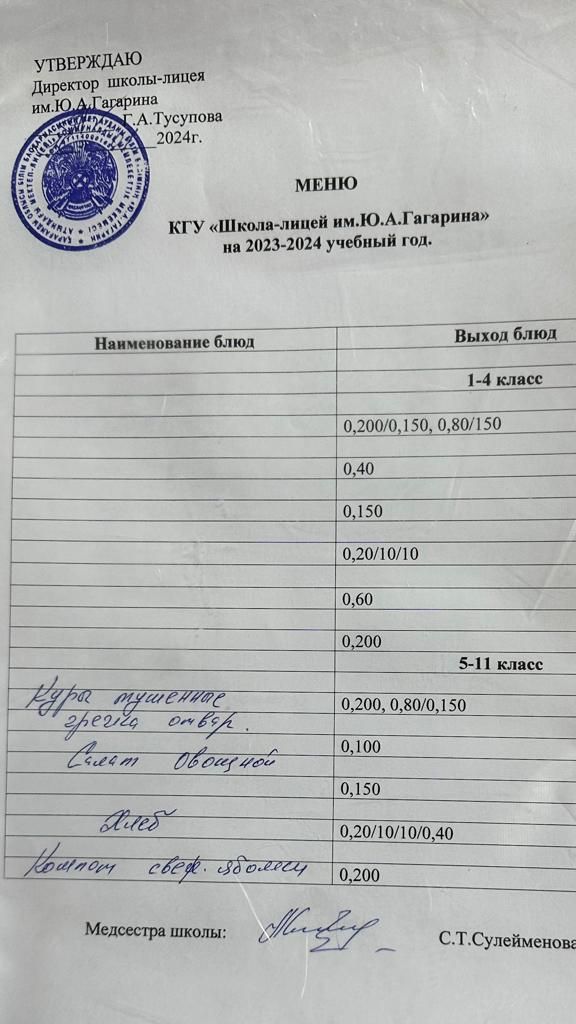 УТВЕРЖДАЮ
Директор школы-лицея
им.Ю.А.Гагарина
Г.А.Тусупова
2024г.
МЕНЮ
КГУ «Школа-лицей им.Ю.А.Гагарина»
на 2023-2024 учебный год.
Наименование блюд Выход блюд
1-4 класс
0,200/0,150, 0,80/150
0,40
0,150
0,20/10/10
0,60
0,200
5-11 класс
Куры тушенные 0,200, 0,80/0,150
гречка отвар.
Салат Овощной 0,100
0,150
Хлеб 0,20/10/10/0,40
Компот свеж. яблоки 0,200
Медсестра школы: С.Т.Сулейменова